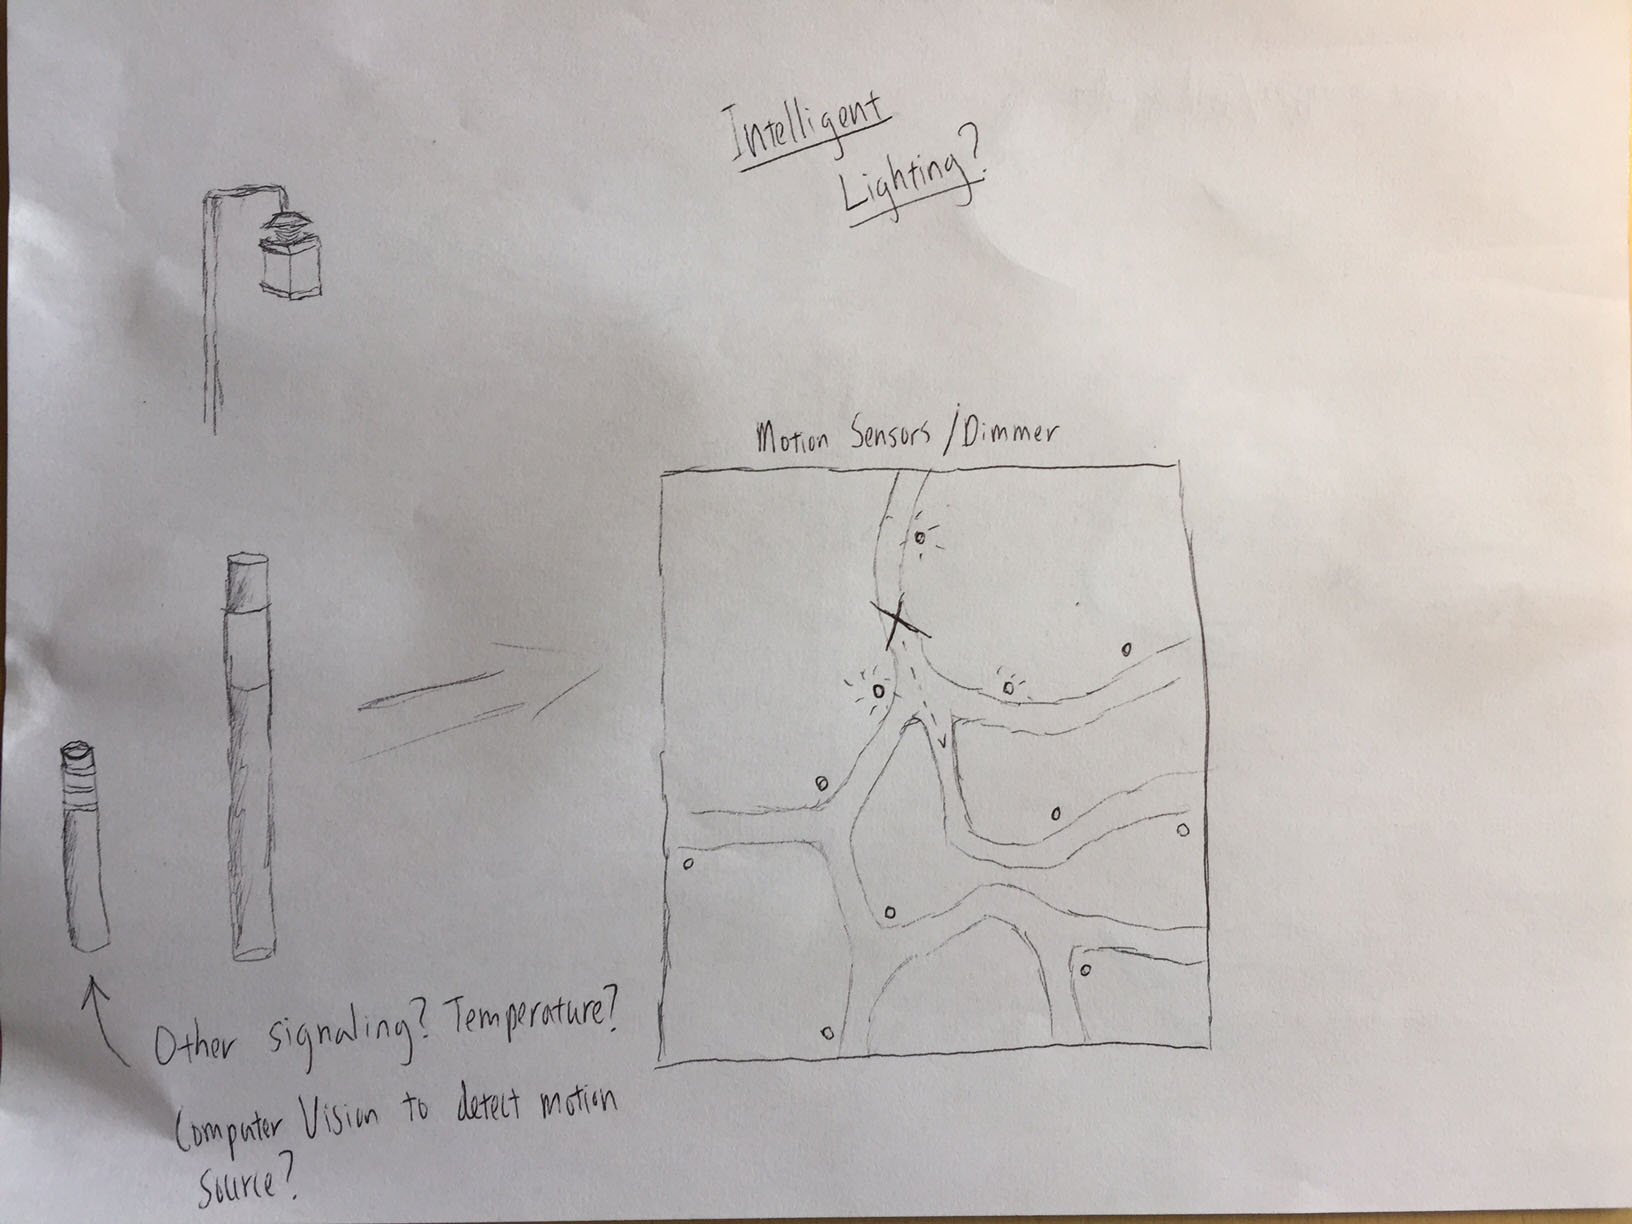 Intelligent
Lighting?
Motion Sensors/Dimmer
Other signaling? Temperature?
Computer Vision to detect motion
source?